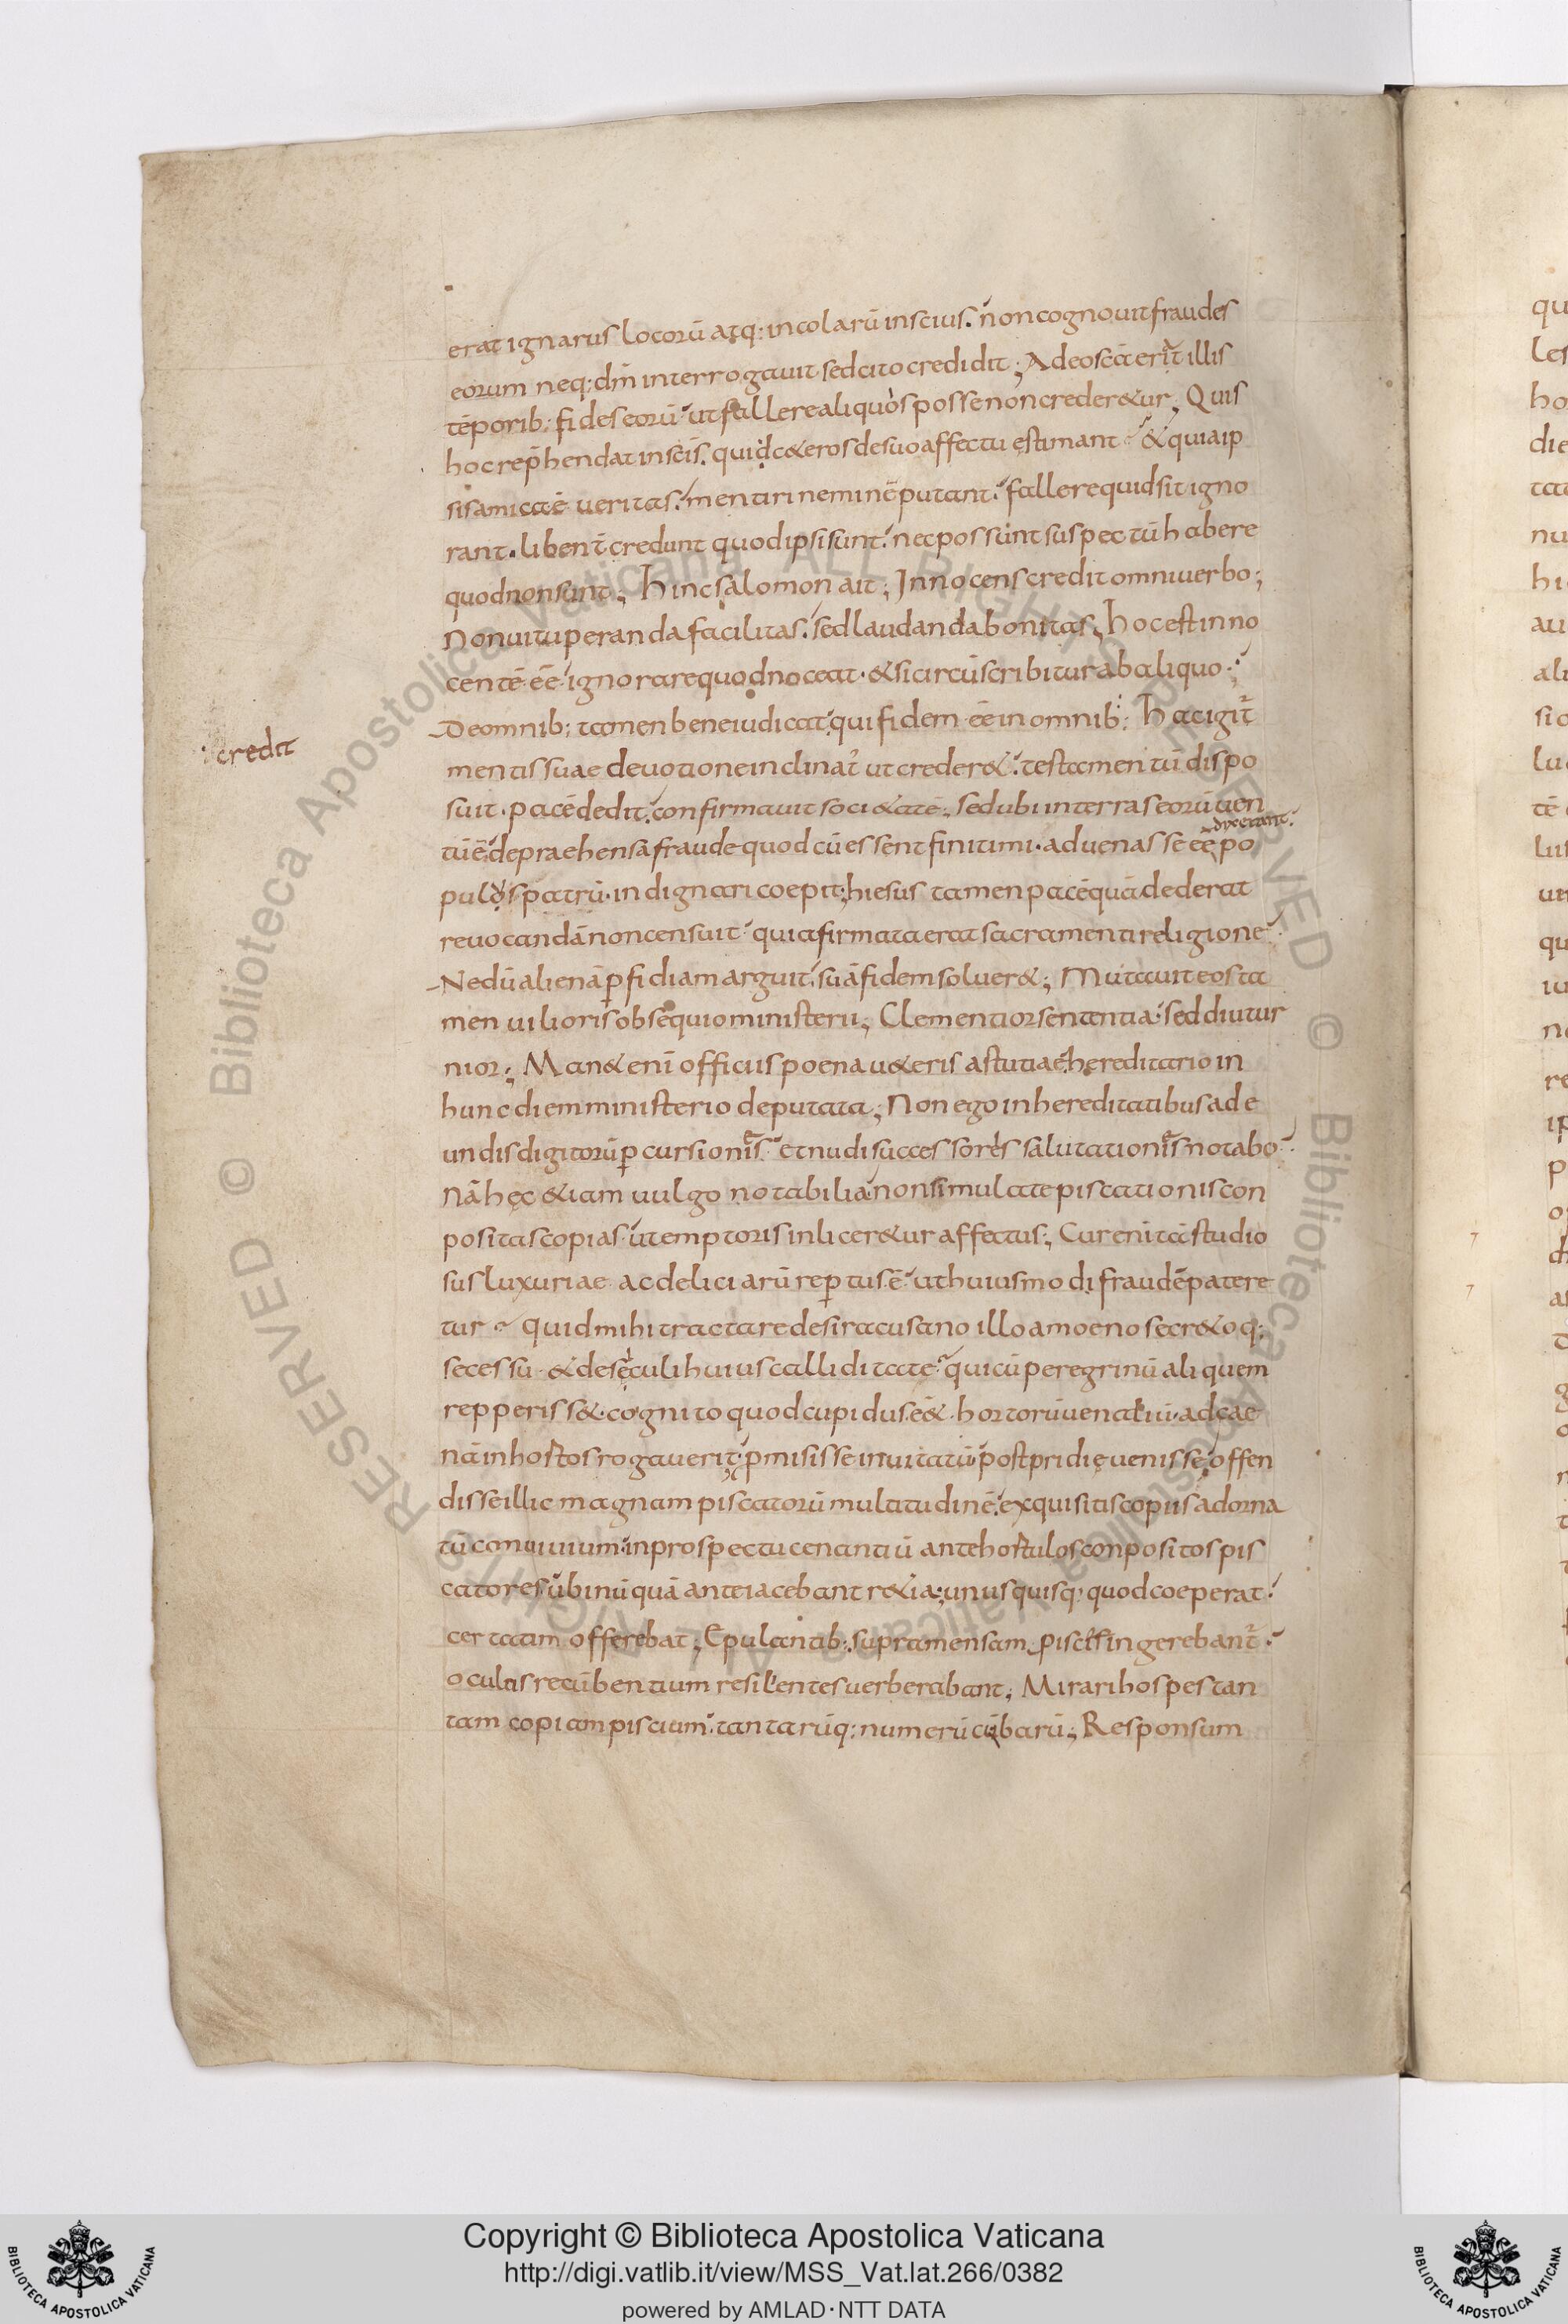 erat ignarus locorū atq: incolarū inscius. non cognouit fraudes
eorum neq: dm̄ interrogauit sed cito credidit; Adeo scā erat̄ illis
tēporib: fides eorū ut fallere aliquos posse non creder&ur; Quis
hoc rep̄hendat in scīs. qui c&eros de suo affectu ęstimant & quia ip
sis amica ē ueritas. mentiri neminē putant. fallere quid sit igno
rant. libent̄ credunt quod ipsi sunt. nec possunt suspectū habere
quod non sunt; Hinc salomon ait; Innocens credit omni uerbo;
Non uituperanda facilitas. sed laudanda bonitas; Hoc est inno
centē ēē ignorare quod noceat. & si circūscribitur ab aliquo.
De omnib: tamen bene iudicat qui fidem ēē in omnib: Hac igit̄
credit
mentis suae deuotione inclinat' ut creder&. testamentū dispo
suit. pacē dedit. confirmauit soci&atē; sed ubi in terras eorū uen
tū ē depraehensa fraude quod cū essent finitimi. aduenas se ēē po
dixerant.
pulos patrū. indignari coepit; hiesus tamen pacē quā dederat
reuocandā non censuit. quia firmata erat sacramenti religione.
Ne dū alienā ꝑfidiam arguit. suā fidem soluer&; Mutauit eos ta
men uilioris obsequio ministerii; Clementior sententia. sed diutur
nior; Man& enī officiis poena u&eris astutiae hereditario in
hunc diem ministerio deputata; Non ego in hereditatibus ade
undis digitorū ꝑcursionis. et nudi successores salutationis notabo.
Nā hęc &iam uulgo notabilia non simulate piscationis con
positas copias. ut emptoris inlicer&ur affectus; Cur enī tā studio
sus luxuriae ac deliciarū reꝑtus ē. ut huiusmodi fraudē patere
tur. Quid mihi tractare de siracusano illo amoeno secr&oq;
secessu. & de sęculi huius calliditate. qui cū peregrinū aliquem
repperiss&. cognito quod cupidus ēē&. hortorū uenaliū. ad cae
nā in hortos rogauerit. ꝓmisisse inuitatū post pridię uenisse offen
disse illic magnam piscatorū multitudinē. exquisitis copiis adorna
tū conuiuium in prospectu cenantiū ante hortulos conpositos pis
catores ubi nūquā ante iacebant r&ia; unusquisq: quod coeperat.
certatim offerebat; Epulantib: supra mensam pisces ingerebant̄.
oculos recūbentium resilientes uerberabant; Mirari hospes tan
tam copiam piscium. tantarūq: numerū cūbarū; Responsum
RESERVED © Biblioteca Apostolica Vaticana ALL RIGHTS RESERVED © Biblioteca Apostolica Vaticana ALL RIGHTS
Copyright © Biblioteca Apostolica Vaticana
http://digi.vatlib.it/view/MSS_Vat.lat.266/0382
powered by AMLAD·NTT DATA
BIBLIOTECA APOSTOLICA VATICANA
BIBLIOTECA APOSTOLICA VATICANA